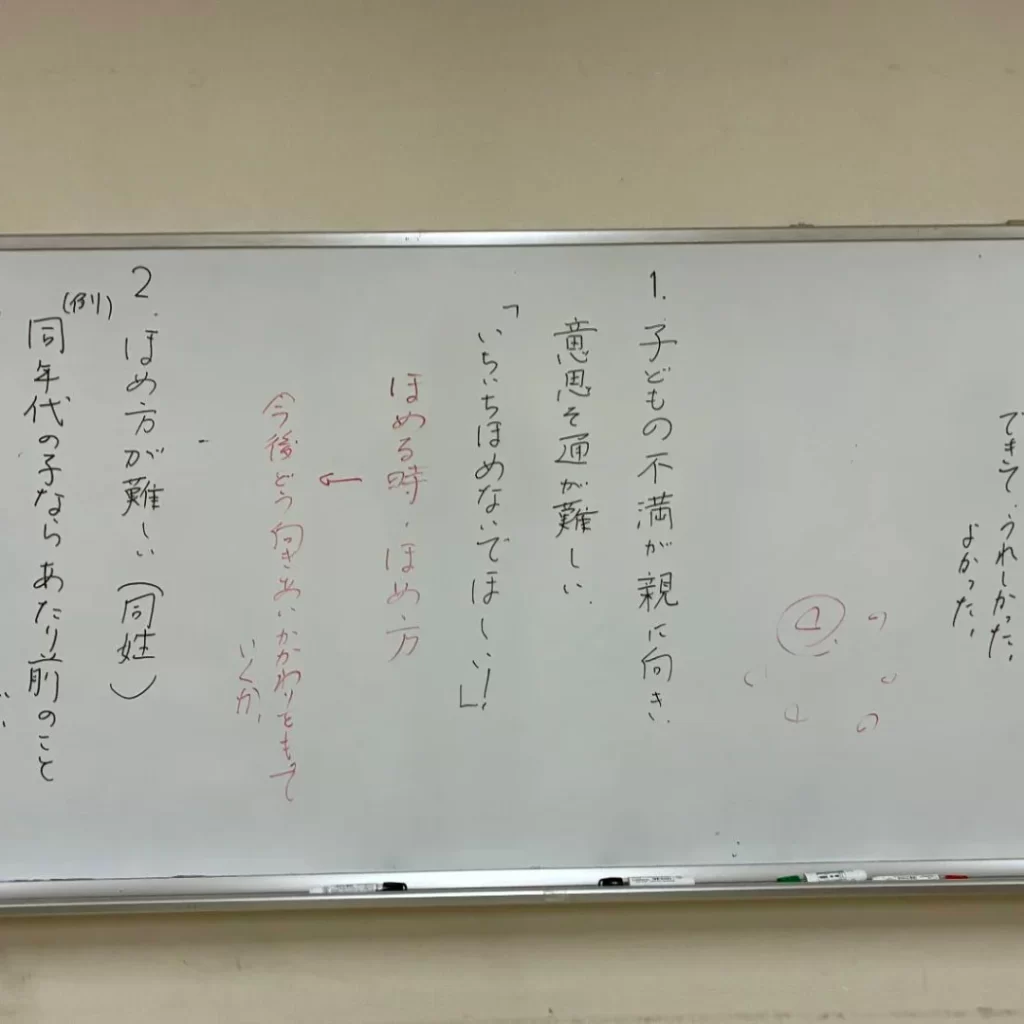 できて、うれしかった。
よかった。
1. 子どもの不満が親に向き
意思そ通が難しい.
「いちいちほめないでほしい!」
ほめる時・ほめ方
←
今後どう向きあいかかわりをもって
いくか。
2. ほめ方が難しい(同姓)
(例)
同年代の子ならあたり前のこと